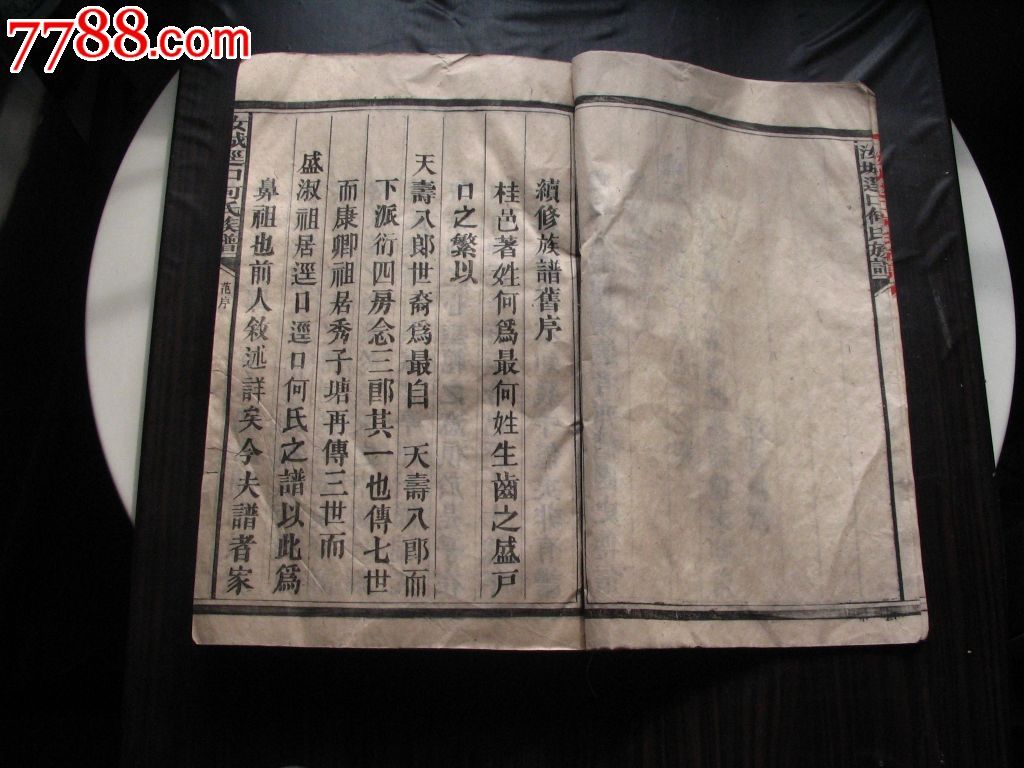 7788.com
汝城逕口何氏族譜
續修族譜舊序
桂邑著姓何爲最何姓生齒之盛戸
口之繁以
天壽八郎世裔爲最自 天壽八郎而
下派衍四房念三郎其一也傳七世
而康卿祖居秀子塘再傳三世而
盛淑祖居逕口逕口何氏之譜以此爲
鼻祖也前人敘述詳矣今夫譜者家
汝城逕口何氏族譜
范序